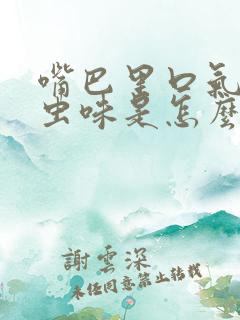 嘴巴里口氣
虫味是怎麼
謝雲深
未经同意禁止转载